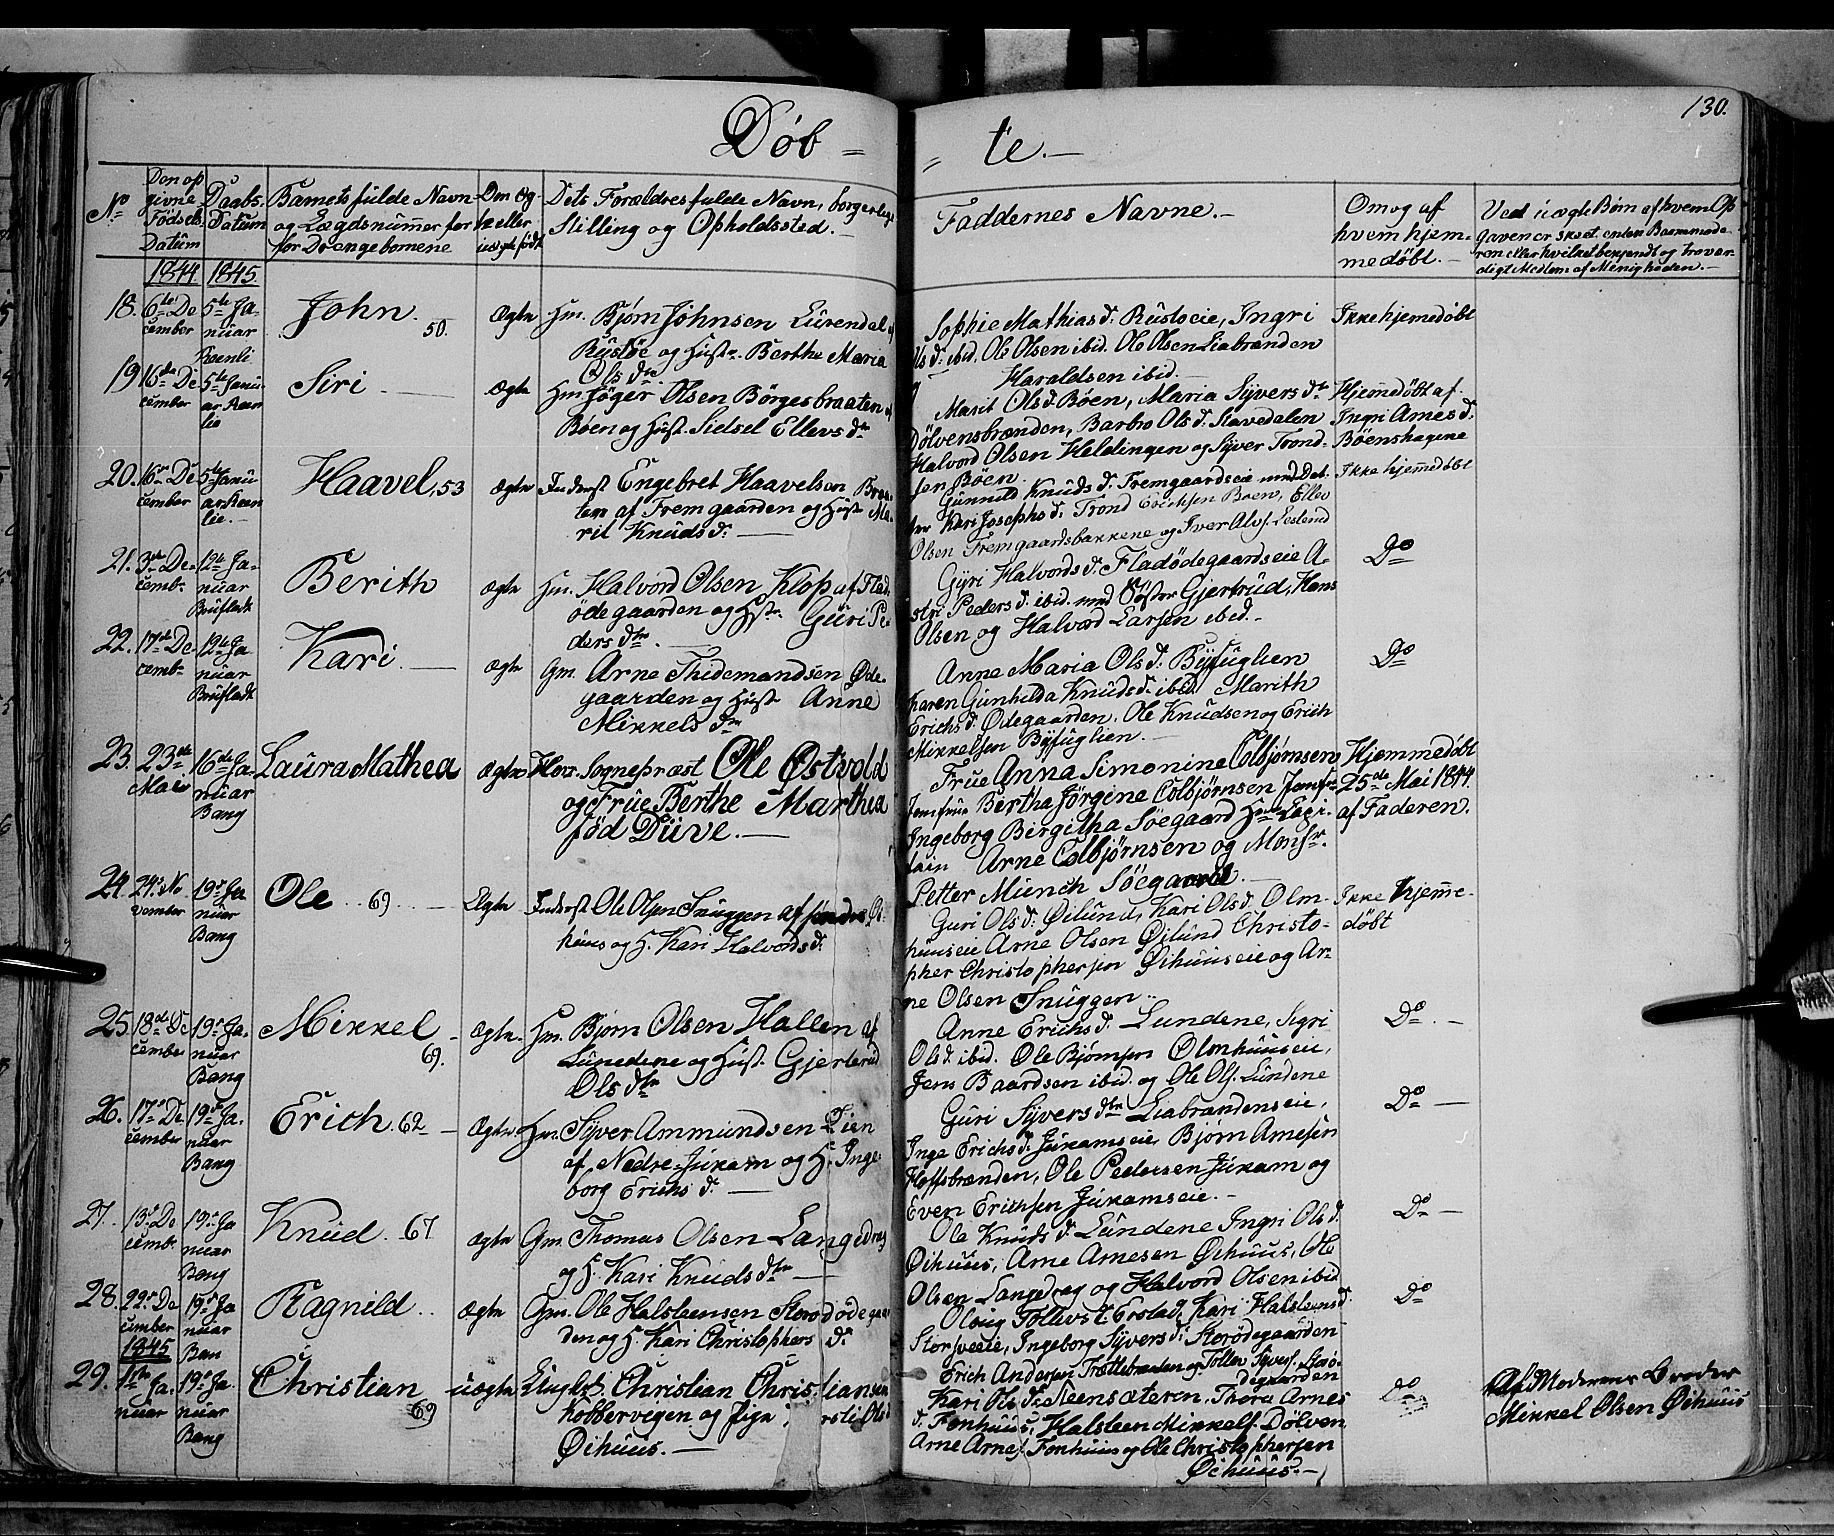 130.
Døb = = te.
No
Den op givne Fødsels Datum
Daabs Datum
Barnets fulde Navn og Lægdsnummer for for Drengebørnene
Om Ægte eller uægte født
Dets Forældres fulde Navn, borgerlige Stilling og Opholdssted.
Faddernes Navne.
Om og af hvem hjemmedøbt.
Ved uægte Børn af hvem Opgaven er skeet enten Barnemoderen eller hvilket bekjendt og troværdigt Medlem af Menigheden.
1844 1845
18. 6te De 5te Ja-
cember nuar
John. 50.
Ægte Hm. Bjørn Johnsen Lurendal af
Rustøe og Hust. Berthe Maria
Ols dtr.
Sophie Mathias d. Rustoeie, Ingri
Ols d. ibid. Ole Olsen ibid. Ole Olsen Liabrænden
Haraldsen ibid.
Ikke hjemedøbt
19 16de De 5te Janu-
cember ar
Siri
Ægte Hm. Olsen Børgesbraaten af
Bøen og Hust. Sidsel Ellevs dtr
Marit Ols d. Bøen, Maria Syvers dtr
Dølvensbrænden, Barbro Ols d. Stavedalen
Halvord Olsen Heldingen og Syver Trond-
sen Bøen.
Hjemedøbt af
Ingri Arnes d.
Bøenshagene
20. 16de De 5te Janu-
cember
Haavel, 53
Ægte Inderst Engebret Haavelsen Braa-
ten af Fremgaarden og Hust. Ma-
rit Knuds d.
Gunnild Knuds d. Fremgaardseie med Dat-
ter Kari Josephs d. Trond Erichsen Boen, Ellev
Olsen Fremgaardsbakkene og Iver Alvs. Leslend
Ikke hjemedøbt
21. 3de De- 12te Ja-
cembr nuar
Brufladt
Berith
Ægte Hm. Halvord Olsen Klop af Flad-
ødegaarden og Hst. Guri Pe-
ders dtr.
Gyri Halvords d. Fladødegaardseie A-
stri Peders d. ibid. med Søster Gjertrud, Hans
Olsen og Halvord Larsen ibid.
Do
22. 17de De 12te Ja-
cembr nuar
Brufladt
Kari.
Ægte Gm. Arne Thidemandsen Øde-
gaarden og Hust. Anne
Mikkels dtr
Anne Maria Ols d. Byfuglien
Karen Gunhilda Knuds d. ibid. Marith
Erichs d. Ødegaarden. Ole Knudsen og Erich
Mikkelsen Byfuglien.
Do
23. 23de 16de Ja-
Mai nuar
Bang
Laura Mathea
Ægte Herr Sognepræst Ole Østvold
og Frue Berthe Marthea
fød Düve.
Frue Anna Simonine Colbjørnsen
Jomfrue Bertha Jørgine Colbjørnsen Jomfr.
Ingeborg Birgitha Søegaard Herr Capi-
tain Arne Colbjørnsen og Monsr.
Petter Münch Søegaard.
Hjemmedøbt
25de Mai 1844
af Faderen.
24. 24de No 19de Ja
vember nuar
Bang
Ole 69
Ægte Inderst Ole Olsen Snuggen af søndre Ø-
huus og H. Kari Halvords d.
Guri Ols d. Øilund, Kari Ols d. Olm-
huuseie Arne Olsen Øilund Christo-
pher Christophersen Øihuuseie og Ar-
ne Olsen Snuggen.
Ikke hjemme-
døbt
25 18de De 19de Ja-
cember nuar
Bang
Mikkel 69.
Ægte. Hm. Bjørn Olsen Hallen af
Lundene og Hust. Gjertrud
Ols dtr
Anne Erichs d. Lundene, Sigri
Ols d. ibid. Ole Bjørnsen Olmhuuseie,
Jens Baardsen ibid. og Ole Ols. Lundene
Do.
26. 17de De 19de Ja-
cember nuar
Bang
Erich. 62
Ægte. Hm. Syver Ammundsen Øien
af Nedre Jukam og H. Inge-
borg Erichs d.
Guri Syvers dtr Liabrændenseie,
Inge Erichs d. Jukamseie, Bjørn Arnesen
Hoffsbrænden, Ole Pedersen Jukam og
Even Erichsen Jukamseie.
Do
27. 13de De 19de Ja
cembr nuar
Bang
Knud. 67
Ægte Gm. Thomas Olsen Langedrag
og H. Kari Knuds dtr
Ole Knuds d. Lundene Ingri Ols d.
Øihuus, Arne Arnesen Øihuus, Ole
Olsen Langedrag og Halvord Olsen ibid
Do
28. 22de De 19de Ja
cember nuar
Ban
Ragnild.
Ægte Gm. Ole Halsteensen Storødegaar
den og H. Kari Christophers d.
Olaug Tollevs d. Erstad, Kari Halsteens d.
Storsveeie, Ingeborg Syvers d. Storødegaarden
Erich Andersen Trøttebraaten og Tollev Syvers. Storø-
degaarden
Do
1845
29. 1ste Ja- 19de Ja.
nuar nuar
Bang
Christian 69
uægte Ungk. Christian Christiansen
Kobbervigen og Pige Kjersti Ols d
Øihuus.
Kari Ols d. Steensæteren. Thora Arnes
d. Fønhuus, Halsteen Mikkels. Dølven
Arne Arnes. Fønhuus og Ole Christophersen
Øihuus.
Do
Af Moderens Broder
Mikkel Olsen Øihuus